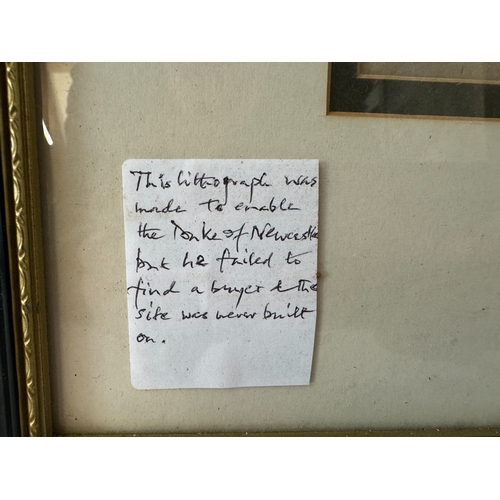 This lithograph was
made to enable
the Duke of Newcastle
but he failed to
find a buyer & the
site was never built
on.